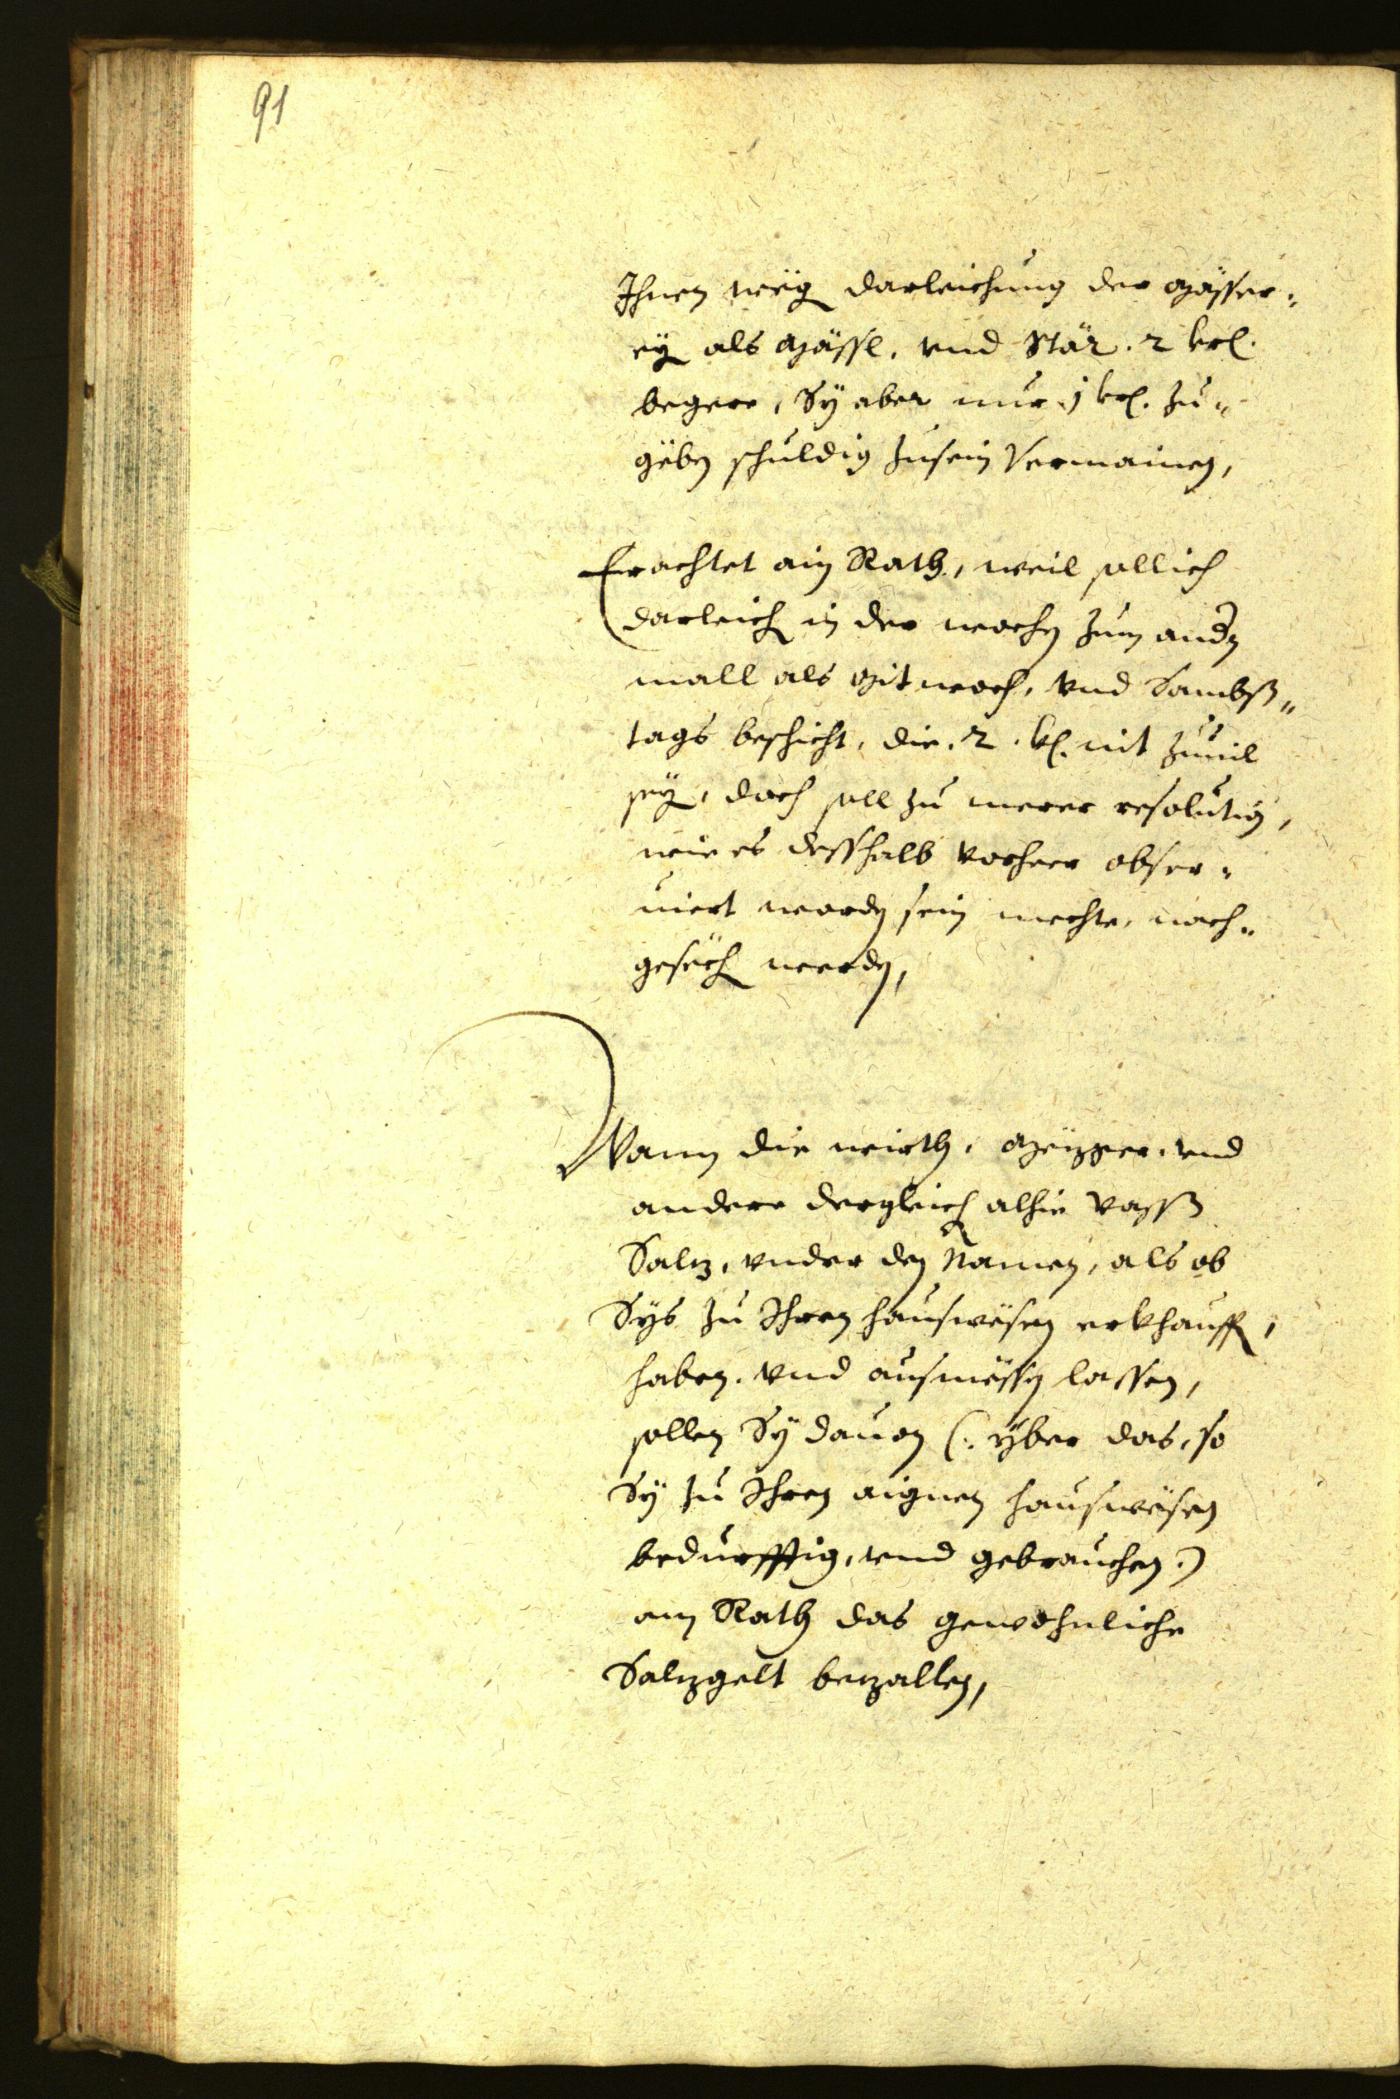 91
Ihnen weg darleichung der Mässer=
eÿ als Mässl, vnd Stär. 2 krl.
begere, Sÿ aber nur 1 krl. zu=
gëben schuldig zusein vermainen,
Erachtet ain Rath, weil sollich
darleich in der wochen zum andern
mall als Mitwoch, vnd Sambß=
tags beschicht, die 2 kr. nit zuuil
seÿ, doch soll zu merer resolution,
wie es desshalb vorheer obser=
uiert worden sein mechte, nach=
gesëch werden,
Wann die wirth, Mezger, vnd
andere dergleich alhie vass
Salz, vnder den Namen, als ob
Sÿs zu Ihren hauswësen erkhauff,
haben, vnd ausmëssen lassen,
sollen Sÿ dauon (: ÿber das, so
Sÿ zu Ihren aignen hauswësen
bedurfftig, vnd gebrauchen:)
ain Rath das gewohnliche
Salzgelt bezallen,